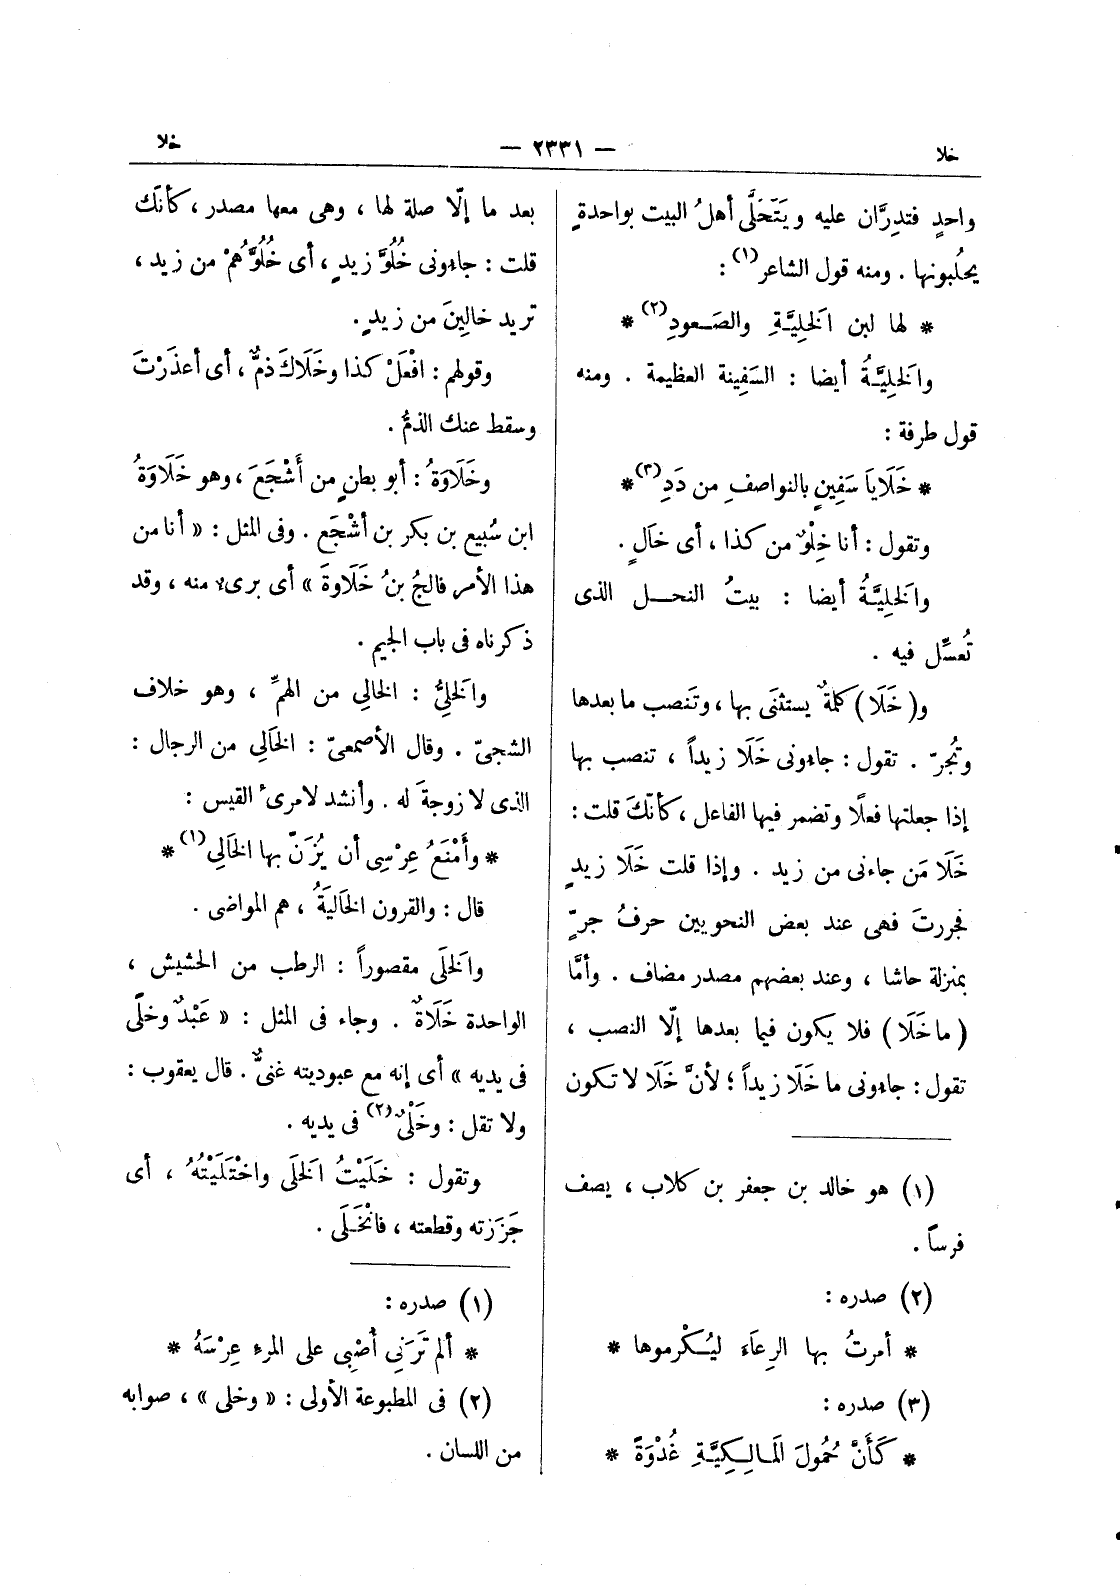 خلا
— ٢٣٣١ —
خلا
واحدٍ فتدِرَّان عليه ويَتَخَلَّى أهلُ البيت بواحدةٍ
يحلُبونها . ومنه قول الشاعر(١) :
* لها لبن الخَلِيَّةِ والصَعودِ(٢) *
والخَلِيَّةُ أيضا : السَفِينة العظيمة . ومنه
قول طرفة :
* خَلَايَا سَفِينٍ بالنواصفِ من دَدِ(٣) *
وتقول : أنا خِلْوٌ من كذا ، أى خالٍ .
والخَلِيَّةُ أيضا : بيتُ النحل الذى
تُعسِّل فيه .
و(خَلَا) كلمةٌ يستثنَى بها ، وتَنصب ما بعدها
وتُجرّ . تقول : جاءونى خَلَا زيداً ، تنصب بها
إذا جعلتها فعلًا وتضمر فيها الفاعل ، كأنّكَ قلت :
خَلَا مَن جاءنى من زيد . وإذا قلت خَلَا زيدٍ
فجررتَ فهى عند بعض النحويين حرفُ جرٍّ
بمنزلة حاشا ، وعند بعضهم مصدر مضاف . وأمَّا
(ما خَلَا) فلا يكون فيما بعدها إلّا النصب ،
تقول : جاءونى ما خَلَا زيداً ؛ لأنَّ خَلَا لا تكون
(١) هو خالد بن جعفر بن كلاب ، يصف
فرساً .
(٢) صدره :
* أمرتُ بها الرِعَاءَ ليُكْرموها *
(٣) صدره :
* كَأَنَّ حُمُولَ المَالِكِيَّةِ غُدْوَةً *
بعد ما إلّا صلة لها ، وهى معها مصدر ، كأنّك
قلت : جاءونى خُلُوَّ زيدٍ ، أى خُلُوَّهُمْ من زيد ،
تريد خالِينَ من زيدٍ .
وقولهم : افْعَلْ كذا وخَلَاكَ ذمٌّ ، أى أعذَرْتَ
وسقط عنك الذمُّ .
وخَلَاوَةُ : أبو بطنٍ من أَشْجَعَ ، وهو خَلَاوَةُ
ابن سُبيع بن بكر بن أشْجَع . وفى المثل : « أنا من
هذا الأمر فالجُ بنُ خَلَاوةَ » أى برىء منه ، وقد
ذكرناه فى باب الجيم .
والخَلِىُّ : الخالِي من الهمِّ ، وهو خلاف
الشجىّ . وقال الأصمعىّ : الخَالِي من الرجال :
الذى لا زوجةَ له . وأنشد لامرىءِ القيس :
* وأَمْنَعُ عِرْسِى أن يُزَنّ بها الخَالِي(١) *
قال : والقرون الخَاليَةُ ، هم المواضى .
والخَلَى مقصوراً : الرطب من الحشيش ،
الواحدة خَلَاةٌ . وجاء فى المثل : « عَبْدٌ وخلًى
فى يديه » أى إنه مع عبوديته غنىٌّ . قال يعقوب :
ولا تقل : وخَلْىٌ(٢) فى يديه .
وتقول : خَلَيْتُ الخَلَى واخْتَلَيْتُهُ ، أى
جَزَزته وقطعته ، فانْخَلَى .
(١) صدره :
* ألم تَرَنِي أُصْبِى على المرءِ عِرْسَهُ *
(٢) فى المطبوعة الأولى : « وخلى » ، صوابه
من اللسان .